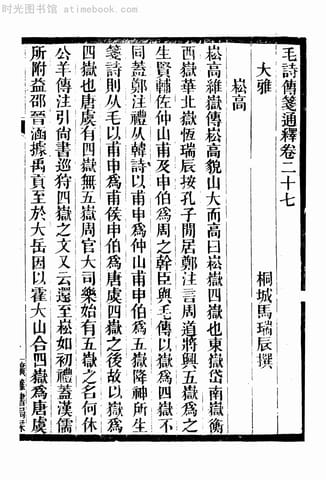 时光图书馆 atimebook.com
毛詩傳箋通釋卷二十七
桐城馬瑞辰撰
大雅
崧高
崧高維嶽傳崧高貌山大而高曰崧嶽四嶽也東嶽岱南嶽衡
西嶽華北嶽恆瑞辰按孔子閒居鄭注言周道將興五嶽爲之
生賢輔佐仲山甫及申伯爲周之幹臣與毛傳以嶽爲四嶽不
同蓋鄭注禮从韓詩以甫申爲仲山甫申伯爲五嶽降神所生
箋詩則从毛以甫申爲甫侯申伯爲唐虞四嶽之後故以嶽爲
四嶽也唐虞有四嶽無五嶽周官大司樂始有五嶽之名何休
公羊傳注引尚書巡狩四嶽之文又云還至崧如初禮蓋漢儒
所附益邵晉涵據禹貢至於大岳因以霍大山合四嶽爲唐虞
一 廣雅書局栞